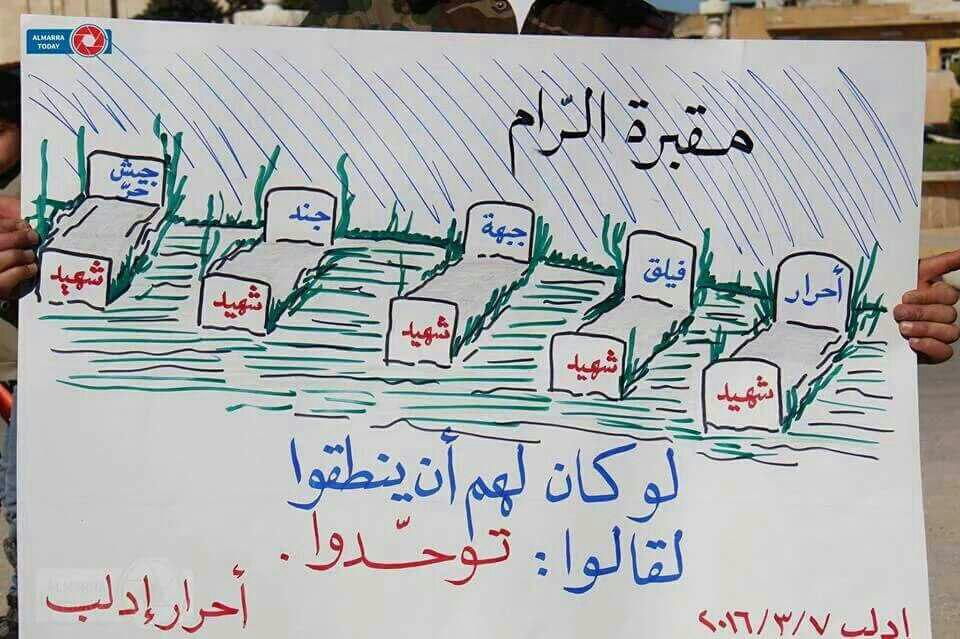 ALMARRA
TODAY
مقبرة الرّام
جيش
حرّ
جند
جبهة
فيلق
أحرار
شهيد
شهيد
شهيد
شهيد
شهيد
لو كان لهم أن ينطقوا
لقالوا: توحّدوا.
أحرار إدلب
ادلب ٢٠١٦/٣/٧